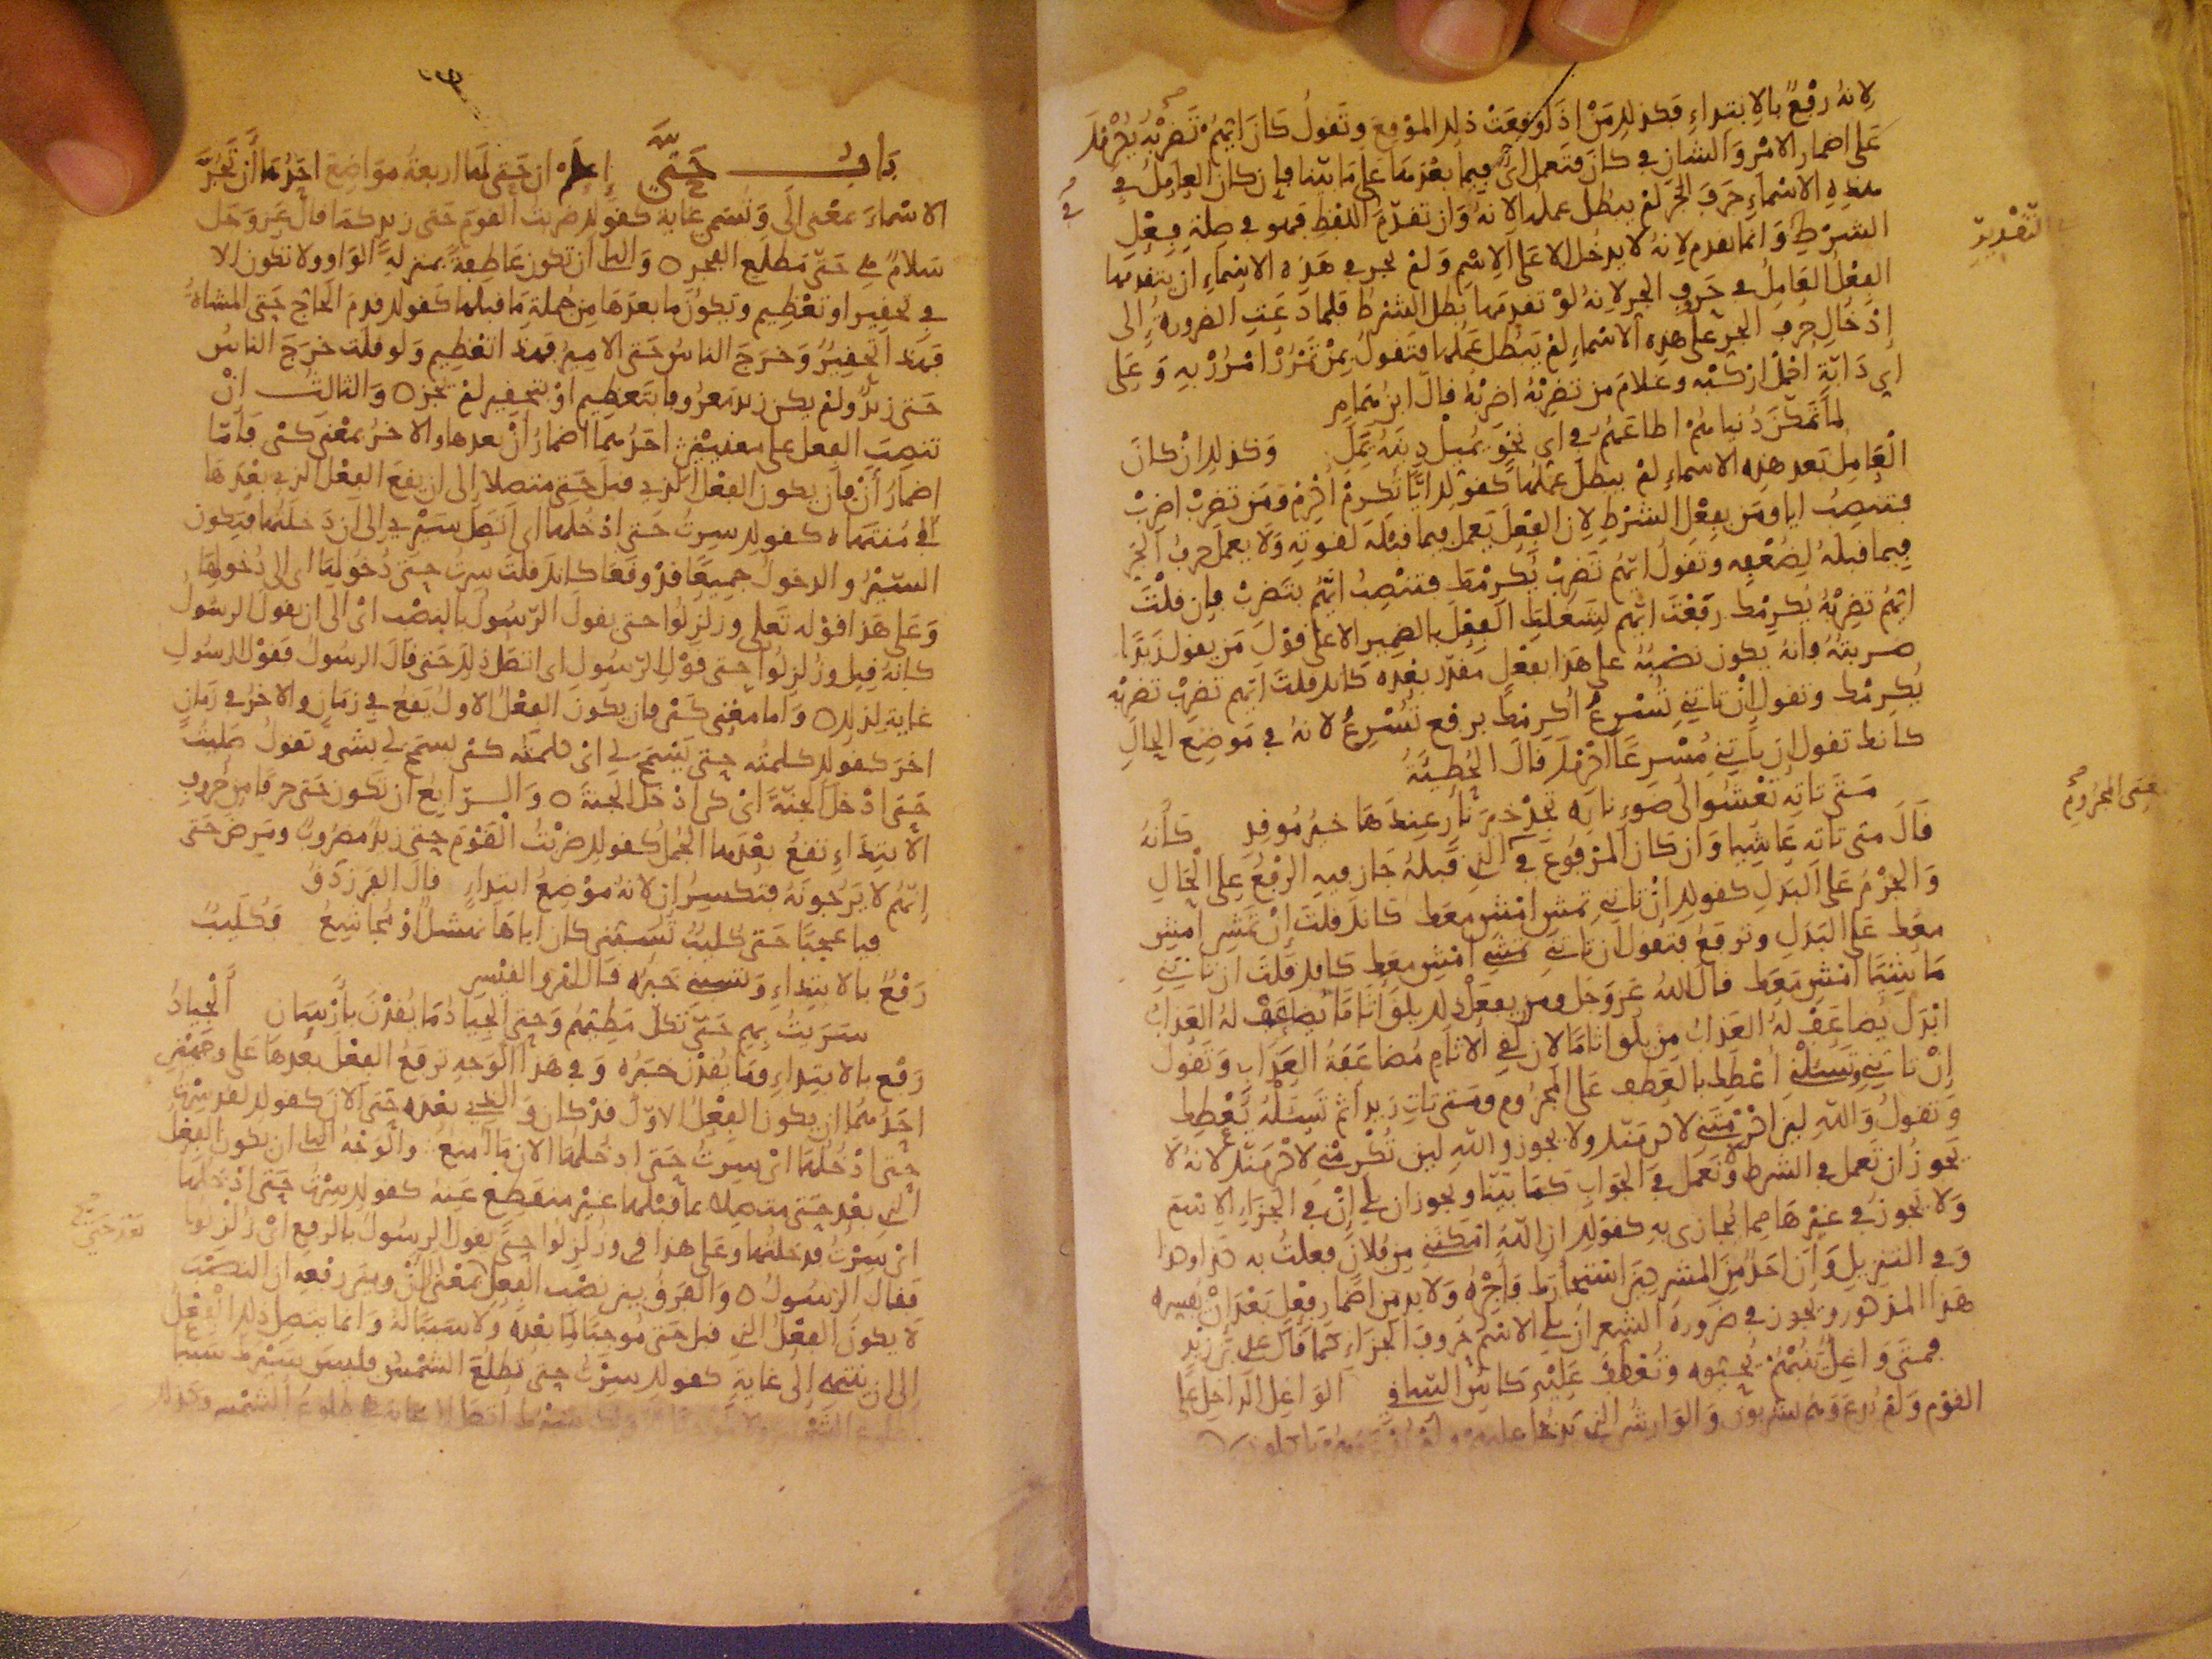 لانه رفع بالابتداء فكذلك من اذ لو وقعت ذلك الموقع وتقول كان ايهم تضربه يكرمك
على اضمار الامر والشان في كان فتعمل اي فيما بعدها على ما بينا فان كان العامل في
هذه الاسماء حرف الجر لم يبطل عملها لانه وان تقدم اللفظ فهو في صلة فعل
التقدير
الشرط وانما تقدم لانه لا يدخل الا على الاسم ولم يجر في هذه الاسماء ان يتقدمها
الفعل العامل في حروف الجر لانه لو تقدمها بطل الشرط فلما دعت الضرورة إلى
إدخال حرف الجر على هذه الاسماء لم يبطل عملها فتقول بمن تمرر امرر به وعلى
اي دابة احمل اركبه وغلام من تضربه اضربه قال ابن همام
لما تمكن دنياهم اطاعهم في اي نحو يميلوا دينه يمل وكذلك ان كان
العامل بعد هذه الاسماء لم يبطل عملها كقولك ايا تكرم اكرم ومن تضرب اضرب
فتنصب ايا ومن بفعل الشرط لان الفعل يعمل فيما قبله لقوته ولا يعمل حرف الجر
فيما قبله لضعفه وتقول ايهم تضرب يكرمك فتنصب ايهم بتضرب فان قلت
ايهم تضربه يكرمك رفعت ايهم لشغلك الفعل بالضمير الا على قول من يقول زيدا
ضربته فانه يكون نصبه على هذا بفعل مقدر بعده كانك قلت ايهم تضرب تضربه
يكرمك وتقول إن تاتني تسرع اكرمك برفع تسرع لانه في موضع الحال
كانك تقول ان تاتني مسرعا اكرمك قال الحطيئة
متى تاته تعشوا الى ضوء ناره تجد خير نار عندها خير موقد كأنه
قال متى تاته عاشيا وان كان المرفوع في الذي قبله جاز فيه الرفع على الحال
معنى المجزوم صح
والجزم على البدل كقولك ان تاتني تمش امش معك كانك قلت إن تمش امش
معك على البدل وترفع فتقول ان تاتني تمشي امش معك كانك قلت ان تاتني
ماشيا امش معك قال الله عز وجل ومن يفعل ذلك يلق اثاما يضاعف له العذاب
ابدل يضاعف له العذاب من يلق اثاما لان لقي الاثام مضاعفة العذاب وتقول
إن تاتني وتسئلني اعطك بالعطف على المجزوم ومتى تات زيدا ثم تسئله يعطك
وتقول والله لين اكرمتني لاكرمنك ولا يجوز والله لين تكرمني لاكرمنك لانه لا
يجوز ان تعمل في الشرط ولا تعمل في الجواب كما بينا ويجوز ان يلي إن في الجزاء الاسم
ولا يجوز في غيرها مما يجازى به كقولك ان الله امكنني من فلان فعلت به كذا وكذا
وفي التنزيل وان احد من المشركين استجارك فاجره ولا بد من اضمار فعل بعد ان يفسره
هذا المذكور ويجوز في ضرورة الشعر ان يلي الاسم حروف الجزاء كما قال عدي بن زيد
فمتى واغل ينبهم يحيوه وتعطف عليه كاس الساقي الواغل الداخل على
القوم ولم يدع وهم يشربون والوارش الذي يدخل عليهم
باب حتى إعلم ان حتى لها اربعة مواضع احدها أن تجر
الاسماء بمعنى الى وتسمى غاية كقولك ضربت القوم حتى زيد كما قال عز وجل
سلام هي حتى مطلع الفجر ه والثاني أن تكون عاطفة بمنزلة الواو ولا تكون إلا
في تحقير او تعظيم ويكون ما بعدها من جملة ما قبلها كقولك قدم الحاج حتى المشاة
فهذا تحقير وخرج الناس حتى الامير فهذا تعظيم ولو قلت خرج الناس
حتى زيد ولم يكن زيد معروفا بتعظيم او بتحقير لم تجز ه والثالث ان
تنصب الفعل على معنيين احدهما اضمار أن بعدها والاخر بمعنى كي فأما
إضمار أن فان يكون الفعل الذي قبل حتى متصلا إلى ان يقع الفعل الذي بعدها
في منتهاه كقولك سرت حتى ادخلها اي اتصل سيري الى ان دخلتها فيكون
السير والدخول جميعا قد وقعا كانك قلت سرت حتى دخولها اي الى دخولها
وعلى هذا قوله تعلى وزلزلوا حتى يقول الرسول بالنصب اي الى ان يقول الرسول
كانه قيل وزلزلوا حتى قول الرسول اي اتصل ذلك حتى قال الرسول فقول الرسول
غاية لذلك ه واما معنى كي فان يكون الفعل الاول يقع في زمان والاخر في زمان
اخر كقولك كلمته حتى يسمح لي اي كلمته كي يسمح لي بشيء وتقول صليت
حتى ادخل الجنة اي كي ادخل الجنة ه والرابع ان تكون حتى حرفا من حروف
الابتداء تقع بعدها الجمل كقولك ضربت القوم حتى زيد مضروب ومرض حتى
إنهم لا يرجونه فتكسر إن لانه موضع ابتداء قال الفرزدق
فيا عجبا حتى كليب تسبني كان اباها نهشل او مجاشع فكليب
رفع بالابتداء وتسبني خبره قال امرؤ القيس
سريت بهم حتى تكل مطيهم وحتى الجياد ما يقدن بأرسان الجياد
رفع بالابتداء وما يقدن خبره وفي هذا الوجه ترفع الفعل بعدها على وجهين
احدهما ان يكون الفعل الاول قد كان والذي بعده حتى الان كقولك لقد سرت
حتى ادخلها اي سرت حتى ادخلها الان ما امنع والوجه الثاني ان يكون الفعل
الذي بعد حتى متصلا بما قبلها غير منقطع عنه كقولك سرت حتى ادخلها
اي سرت فدخلتها وعلى هذا قرئ وزلزلوا حتى يقول الرسول بالرفع اي زلزلوا
بعد حتى صح
فقال الرسول ه والفرق بين نصب الفعل بمعنى إلى أن وبين رفعه ان النصب
لا يكون الفعل الذي قبل حتى موجبا لما بعده ولا سببا له وانما يتصل ذلك الفعل
إلى ان ينتهي إلى غاية كقولك سرت حتى تطلع الشمس فليس سيرك سببا